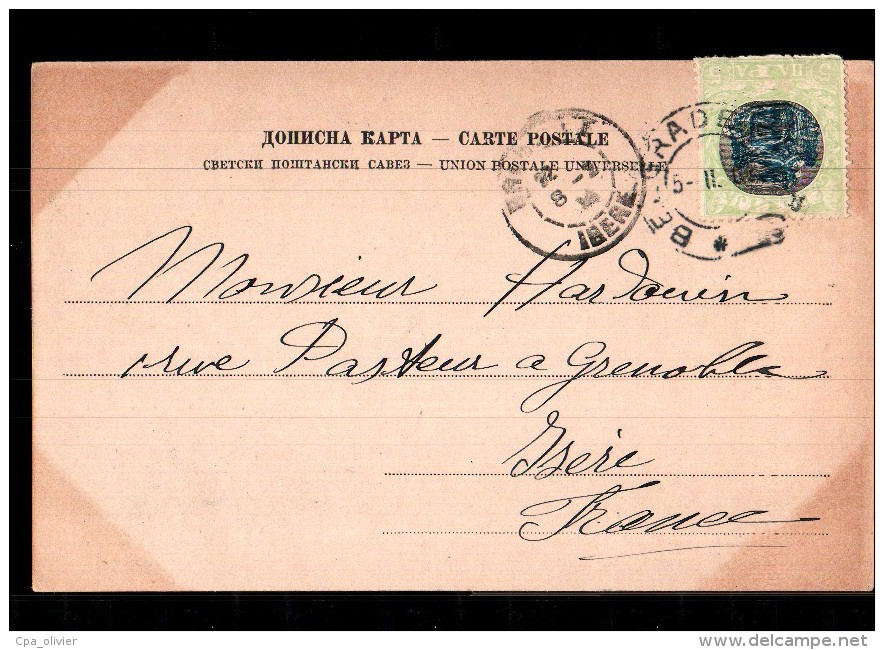 ДОПИСНА КАРТА — CARTE POSTALE
СВЕТСКИ ПОШТАНСКИ САВЕЗ — UNION POSTALE UNIVERSELLE
5 ПАРА 5
BELGRADE
ISERE
Monsieur Hardouin
rue Pasteur a Grenoble
Isère
France
Cpa_olivier
delcampe.net